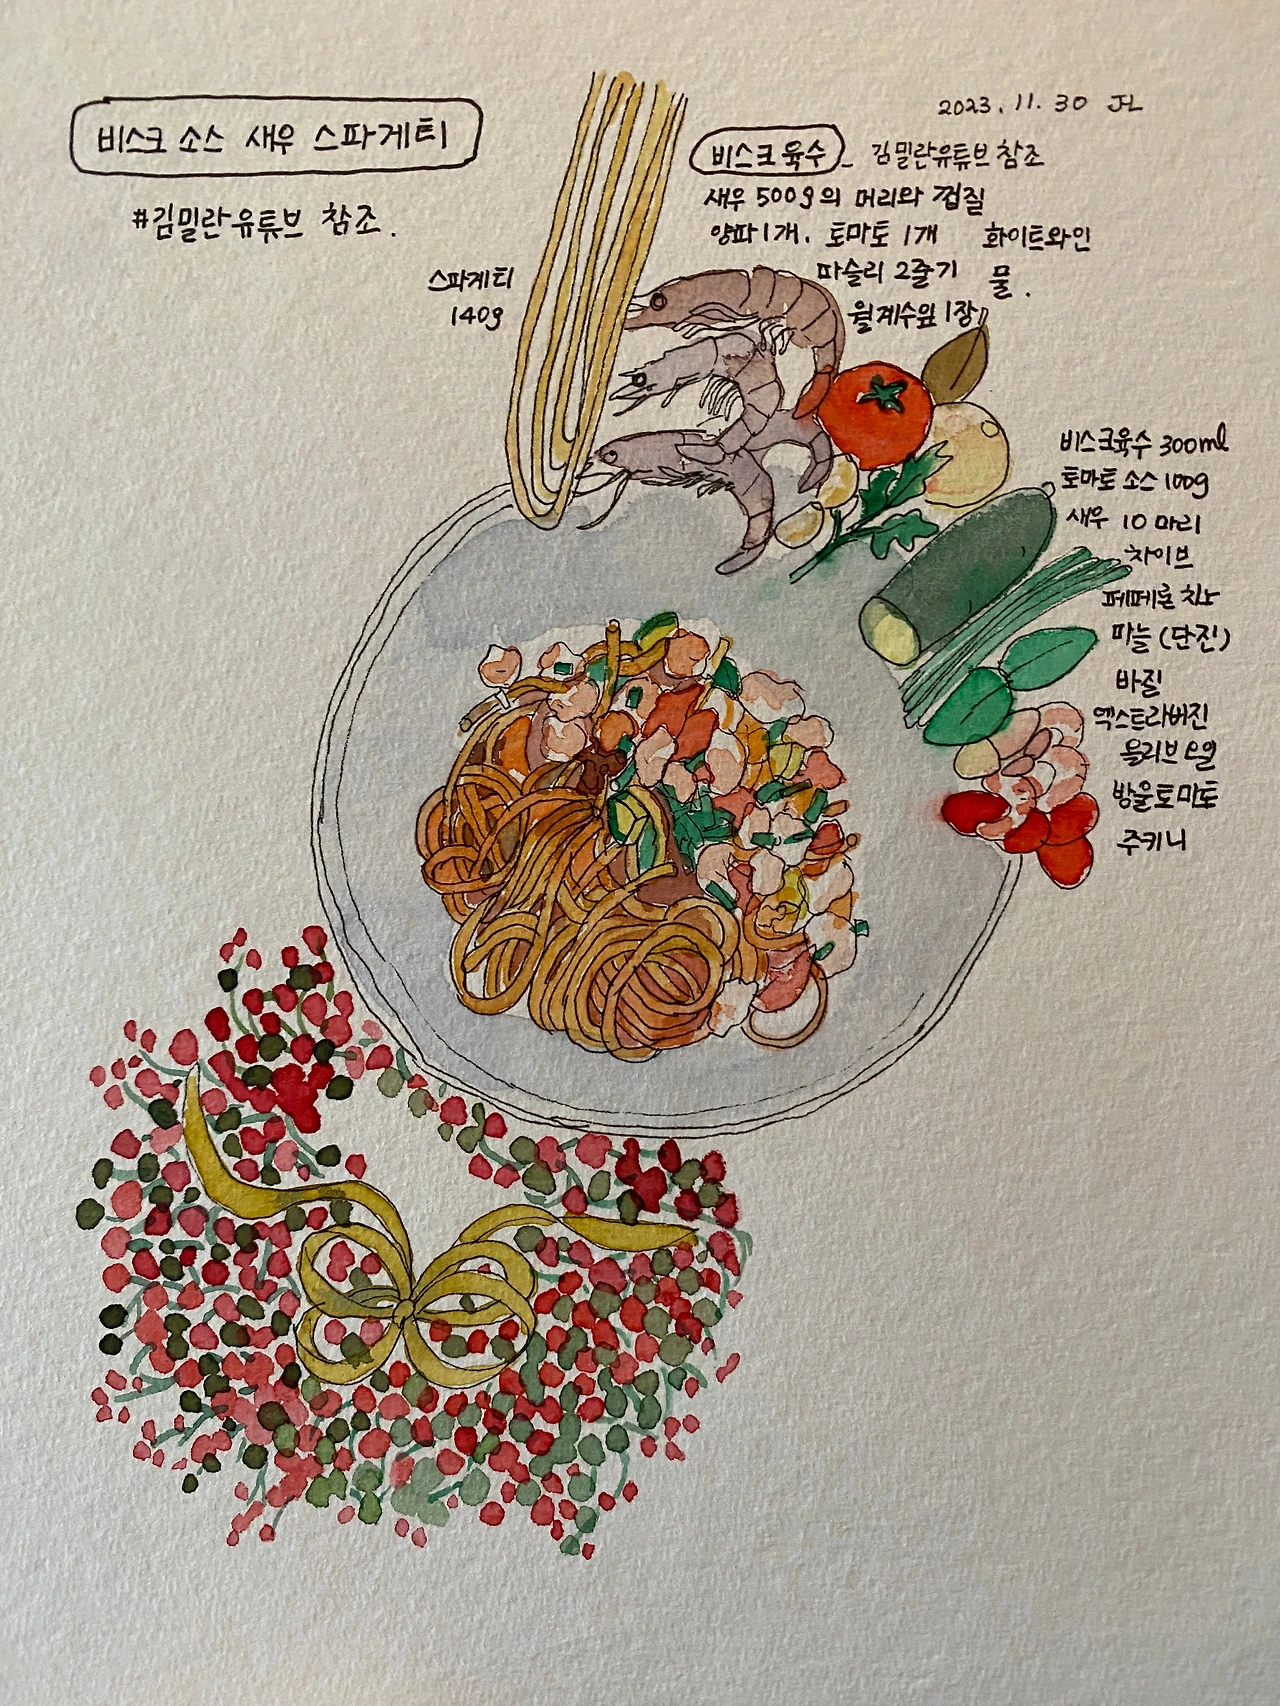 비스크 소스 새우 스파게티
#김밀란유튜브 참조.
스파게티
140g
2023. 11. 30 J-L
비스크 육수 - 김밀란유튜브 참조
새우 500g의 머리와 껍질
양파 1개, 토마토 1개 화이트와인
파슬리 2줄기 물.
월계수잎 1장
비스크육수 300ml
토마토 소스 100g
새우 10 마리
차이브
페페론치노
마늘 (다진)
바질
엑스트라버진
올리브오일
방울토마토
주키니